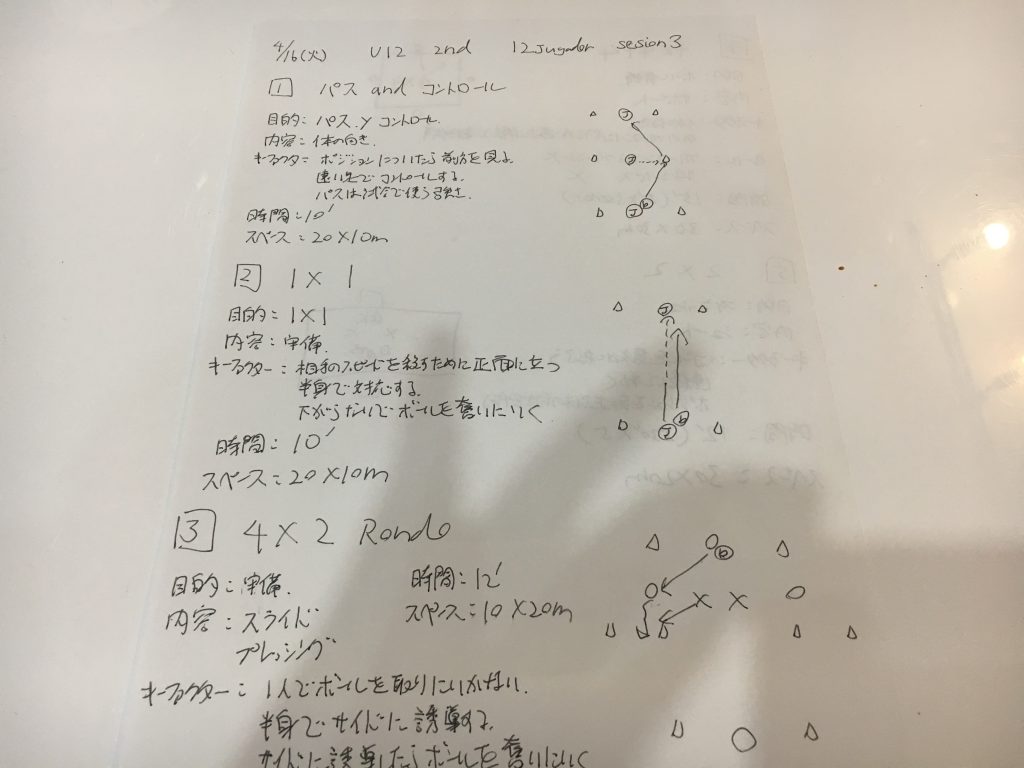 4/16(火) U12 2nd 12 Jugador sesion 3
1 パス and コントロール
目的: パス y コントロール.
内容: 体の向き.
キーファクター: ポジションについたら前方を見る.
遠い足でコントロールする.
パスは試合で使う強さ.
時間: 10'
スペース: 20×10m
2 1×1
目的: 1×1
内容: 守備.
キーファクター: 相手のスピードを殺すために正面に立つ
半身で対応する.
下がらないでボールを奪いにいく
時間: 10'
スペース: 20×10m
3 4×2 Rondo
目的: 守備.
時間: 12'
内容: スライド
スペース: 10×20m
プレッシング
キーファクター: 1人でボールを取りにいかない.
半身でサイドに誘導する.
サイドに誘導したらボールを奪いにいく